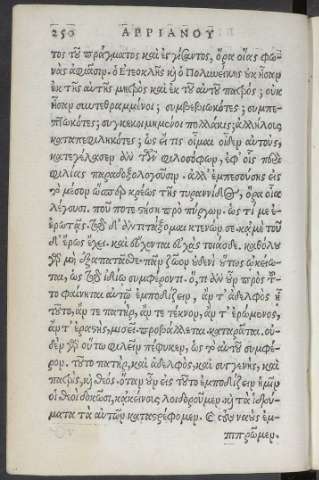 250 ΑΡΡΙΑΝΟΥ
τος τοῦ πράγματος καὶ ἐγγίζοντος, ὅρα οἵας φω-
νὰς ἀφιᾶσιν. ὁ Ετεοκλῆς κὶ ὁ Πολυνείκης οὐκ ἦσαν
ἐκ τῆς αὐτῆς μητρὸς καὶ ἐκ τοῦ αὐτοῦ πατρός; οὐκ
ἦσαν συντεθραμμένοι; συμβεβιωκότες; συμπε-
πτωκότες; συγκεκοιμημένοι πολλάκις; ἀλλήλους
καταπεφιληκότες; ὡς εἴ τις οἶμαι εἶδεν αὐτοὺς,
κατεγέλασεν ἂν τῶν φιλοσόφων, ἐφ' οἷς περὶ
φιλίας παραδοξολογοῦσιν. ἀλλ' ἐμπεσούσης εἰς
τὸ μέσον ὥσπερ κρέως τῆς τυραννίδος, ὅρα οἷα
λέγουσι. ποῦ ποτε στήσῃ πρὸ πύργων. ὡς τί με
ἐρωτᾷς. ἀντιτάξομαι κτενῶν σε. κᾀμὲ τοῦ
δ' ἔρως ἔχει. καὶ εὔχονται εὐχὰς τοιάσδε. καθόλου
γὰρ μὴ ἐξαπατᾶσθε πᾶν ζῶον οὐδενὶ οὕτως ᾠκείω-
ται, ὡς τῷ ἰδίῳ συμφέροντι. ὅ,τι ἂν οὖν πρὸς τοῦ-
το φαίνηται αὐτῷ ἐμποδίζειν, ἄν τ' ἀδελφὸς ᾖ
τοῦτο, ἄν τε πατὴρ, ἄν τε τέκνον, ἄν τ' ἐρώμενος,
ἄν τ' ἐραστὴς, μισεῖ προβάλλεται καταρᾶται. οὐ-
δὲν γὰρ οὕτω φιλεῖν πέφυκεν, ὡς τὸ αὐτοῦ συμφέ-
ρον. τοῦτο πατὴρ, καὶ ἀδελφὸς, καὶ συγγενὴς, καὶ
πατρὶς, κὶ θεός. ὅταν οὖν εἰς τοῦτο ἐμποδίζειν ἡμῖν
οἱ θεοὶ δοκῶσι, κᾀκείνους λοιδοροῦμεν κὶ τὰ ἱδρύ-
ματα τὰ αὐτῶν καταστρέφομεν. καὶ τοὺς ναοὺς ἐμ-
πιπρῶμεν.